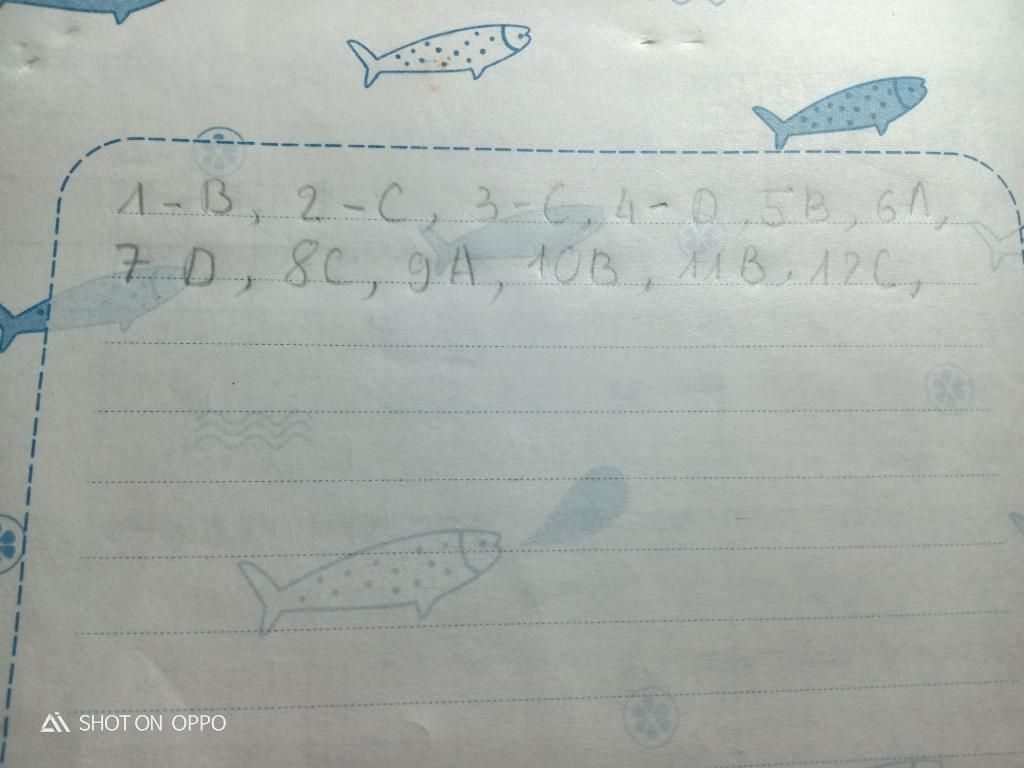 1-B, 2-C, 3-C, 4-D, 5B, 6A,
7D, 8C, 9A, 10B, 11B, 12C,
SHOT ON OPPO